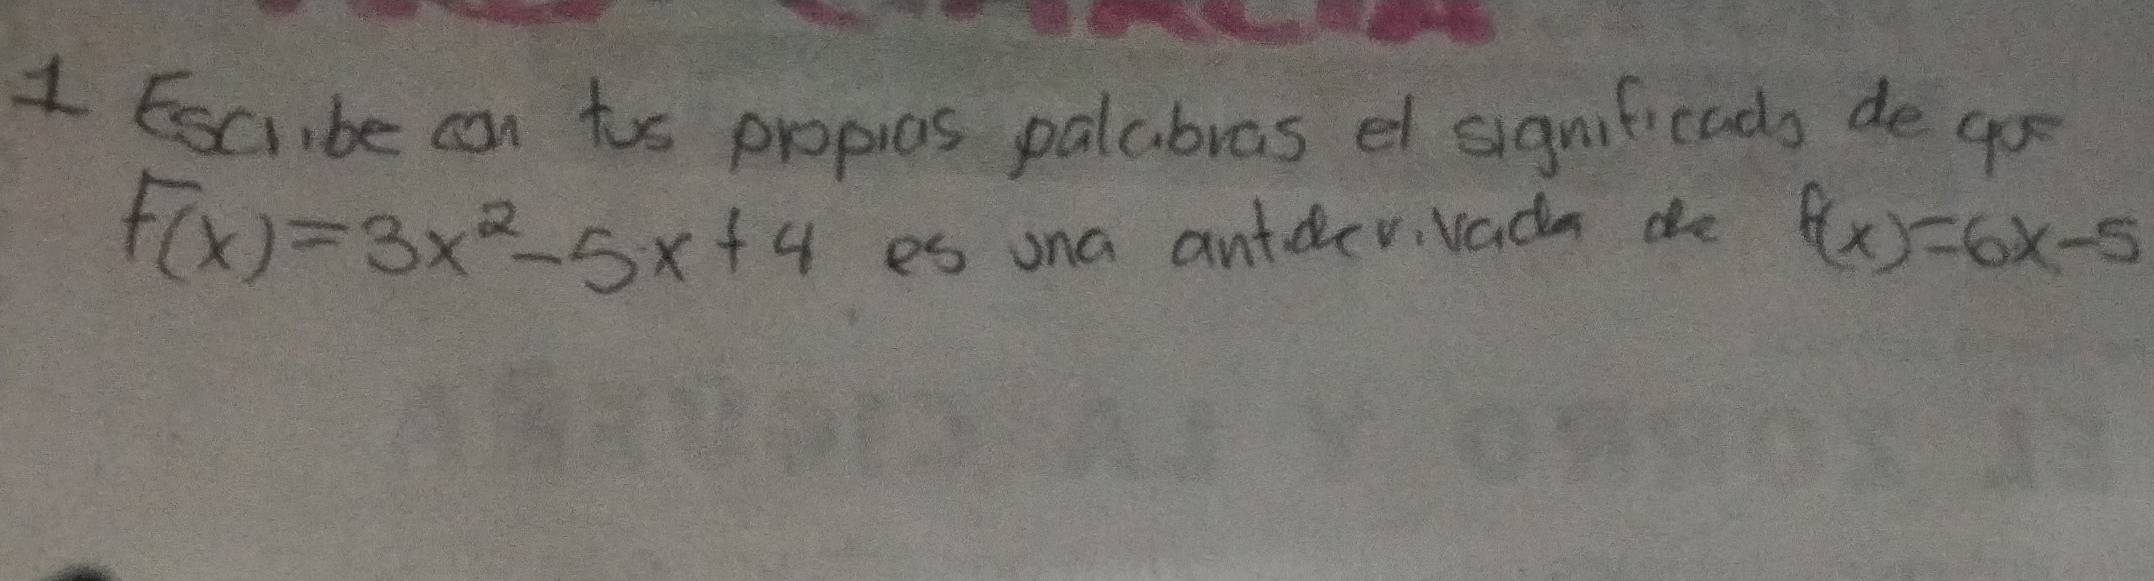 1 Escribe con tus propias palabras el significado de que
F(x)=3x²-5x+4 es una antiderivada de f(x)=6x-5